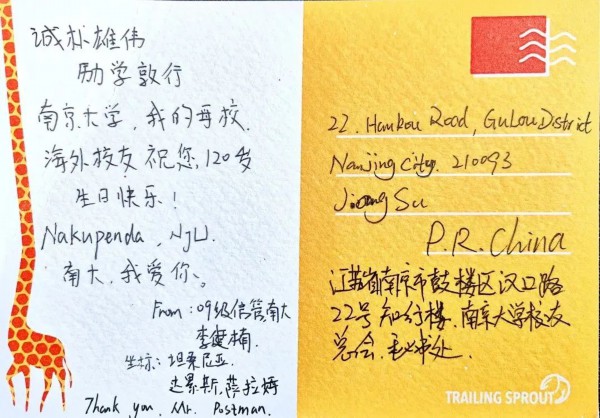 诚朴雄伟
励学敦行
南京大学,我的母校.
海外校友祝您,120岁
生日快乐!
Nakupenda, NJU.
南大,我爱你。
From:09级信管南大
李健楠.
坐标:坦桑尼亚.
达累斯.萨拉姆
Thank you, Mr. Postman.
22. Hankou Road, GuLou District
Nanjing City. 210093
Jiang Su
P.R. China
江苏省南京市鼓楼区汉口路
22号知行楼.南京大学校友
总会.秘书处.
TRAILING SPROUT